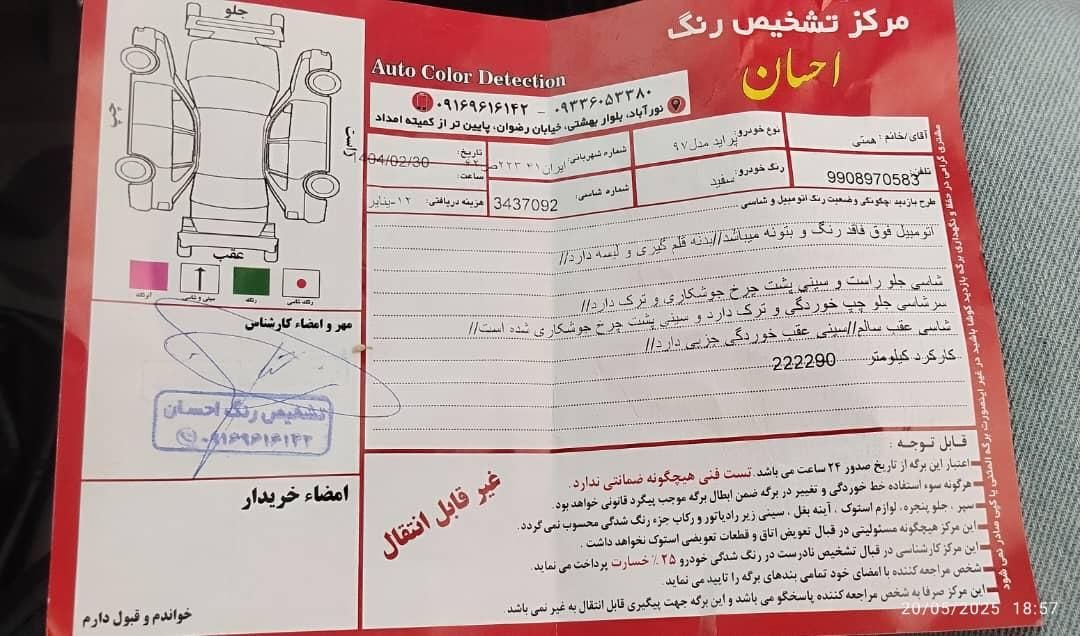 مرکز تشخیص رنگ
احسان
Auto Color Detection
۰۹۱۶۹۶۱۶۱۴۲ - ۰۹۳۳۶۰۵۳۳۸۰
نورآباد، بلوار بهشتی، خیابان رضوان، پایین تر از کمیته امداد
جلو
چپ
راست
عقب
رنگ
سینی و شاسی
آقای/خانم : همتی
نوع خودرو: پراید مدل ۹۷
شماره شهربانی: ایران ۴۱
تاریخ: 1404/02/30
تلفن: 9908970583
رنگ خودرو: سفید
شماره شاسی: 3437092
ساعت:
هزینه دریافتی:
طرح بازدید :چگونگی وضعیت رنگ اتومبیل و شاسی
اتومبیل فوق فاقد رنگ و بتونه میباشد//بدنه قلم گیری و لیسه دارد//
شاسی جلو راست و سینی پشت چرخ جوشکاری و ترک دارد//
سرشاسی جلو چپ خوردگی و ترک دارد و سینی پشت چرخ جوشکاری شده است//
شاسی عقب سالم//سینی عقب خوردگی جزیی دارد//
کارکرد کیلومتر 222290
مهر و امضاء کارشناس
تشخیص رنگ احسان
۰۹۱۶۹۶۱۶۱۴۲
امضاء خریدار
خواندم و قبول دارم
غیر قابل انتقال
قـابل توجـه :
اعتبار این برگه از تاریخ صدور ۲۴ ساعت می باشد. تست فنی هیچگونه ضمانتی ندارد.
هرگونه سوء استفاده خط خوردگی و تغییر در برگه ضمن ابطال برگه موجب پیگرد قانونی خواهد بود.
سپر، جلو پنجره، لوازم استوک، آینه بغل، سینی زیر رادیاتور و رکاب جزء رنگ شدگی محسوب نمی گردد.
این مرکز هیچگونه مسئولیتی در قبال تعویض اتاق و قطعات تعویضی استوک نخواهد داشت.
این مرکز کارشناسی در قبال تشخیص نادرست در رنگ شدگی خودرو ۲۵٪ خسارت پرداخت می نماید.
شخص مراجعه کننده با امضای خود تمامی بندهای برگه را تایید می نماید.
این مرکز صرفا به شخص مراجعه کننده پاسخگو می باشد و این برگه جهت پیگیری قابل انتقال به غیر نمی باشد.
مشتری گرامی در حفظ و نگهداری برگه بازدید کوشا باشید در غیر اینصورت برگه المثنی یا کپی صادر نمی شود
20/05/2025 18:57